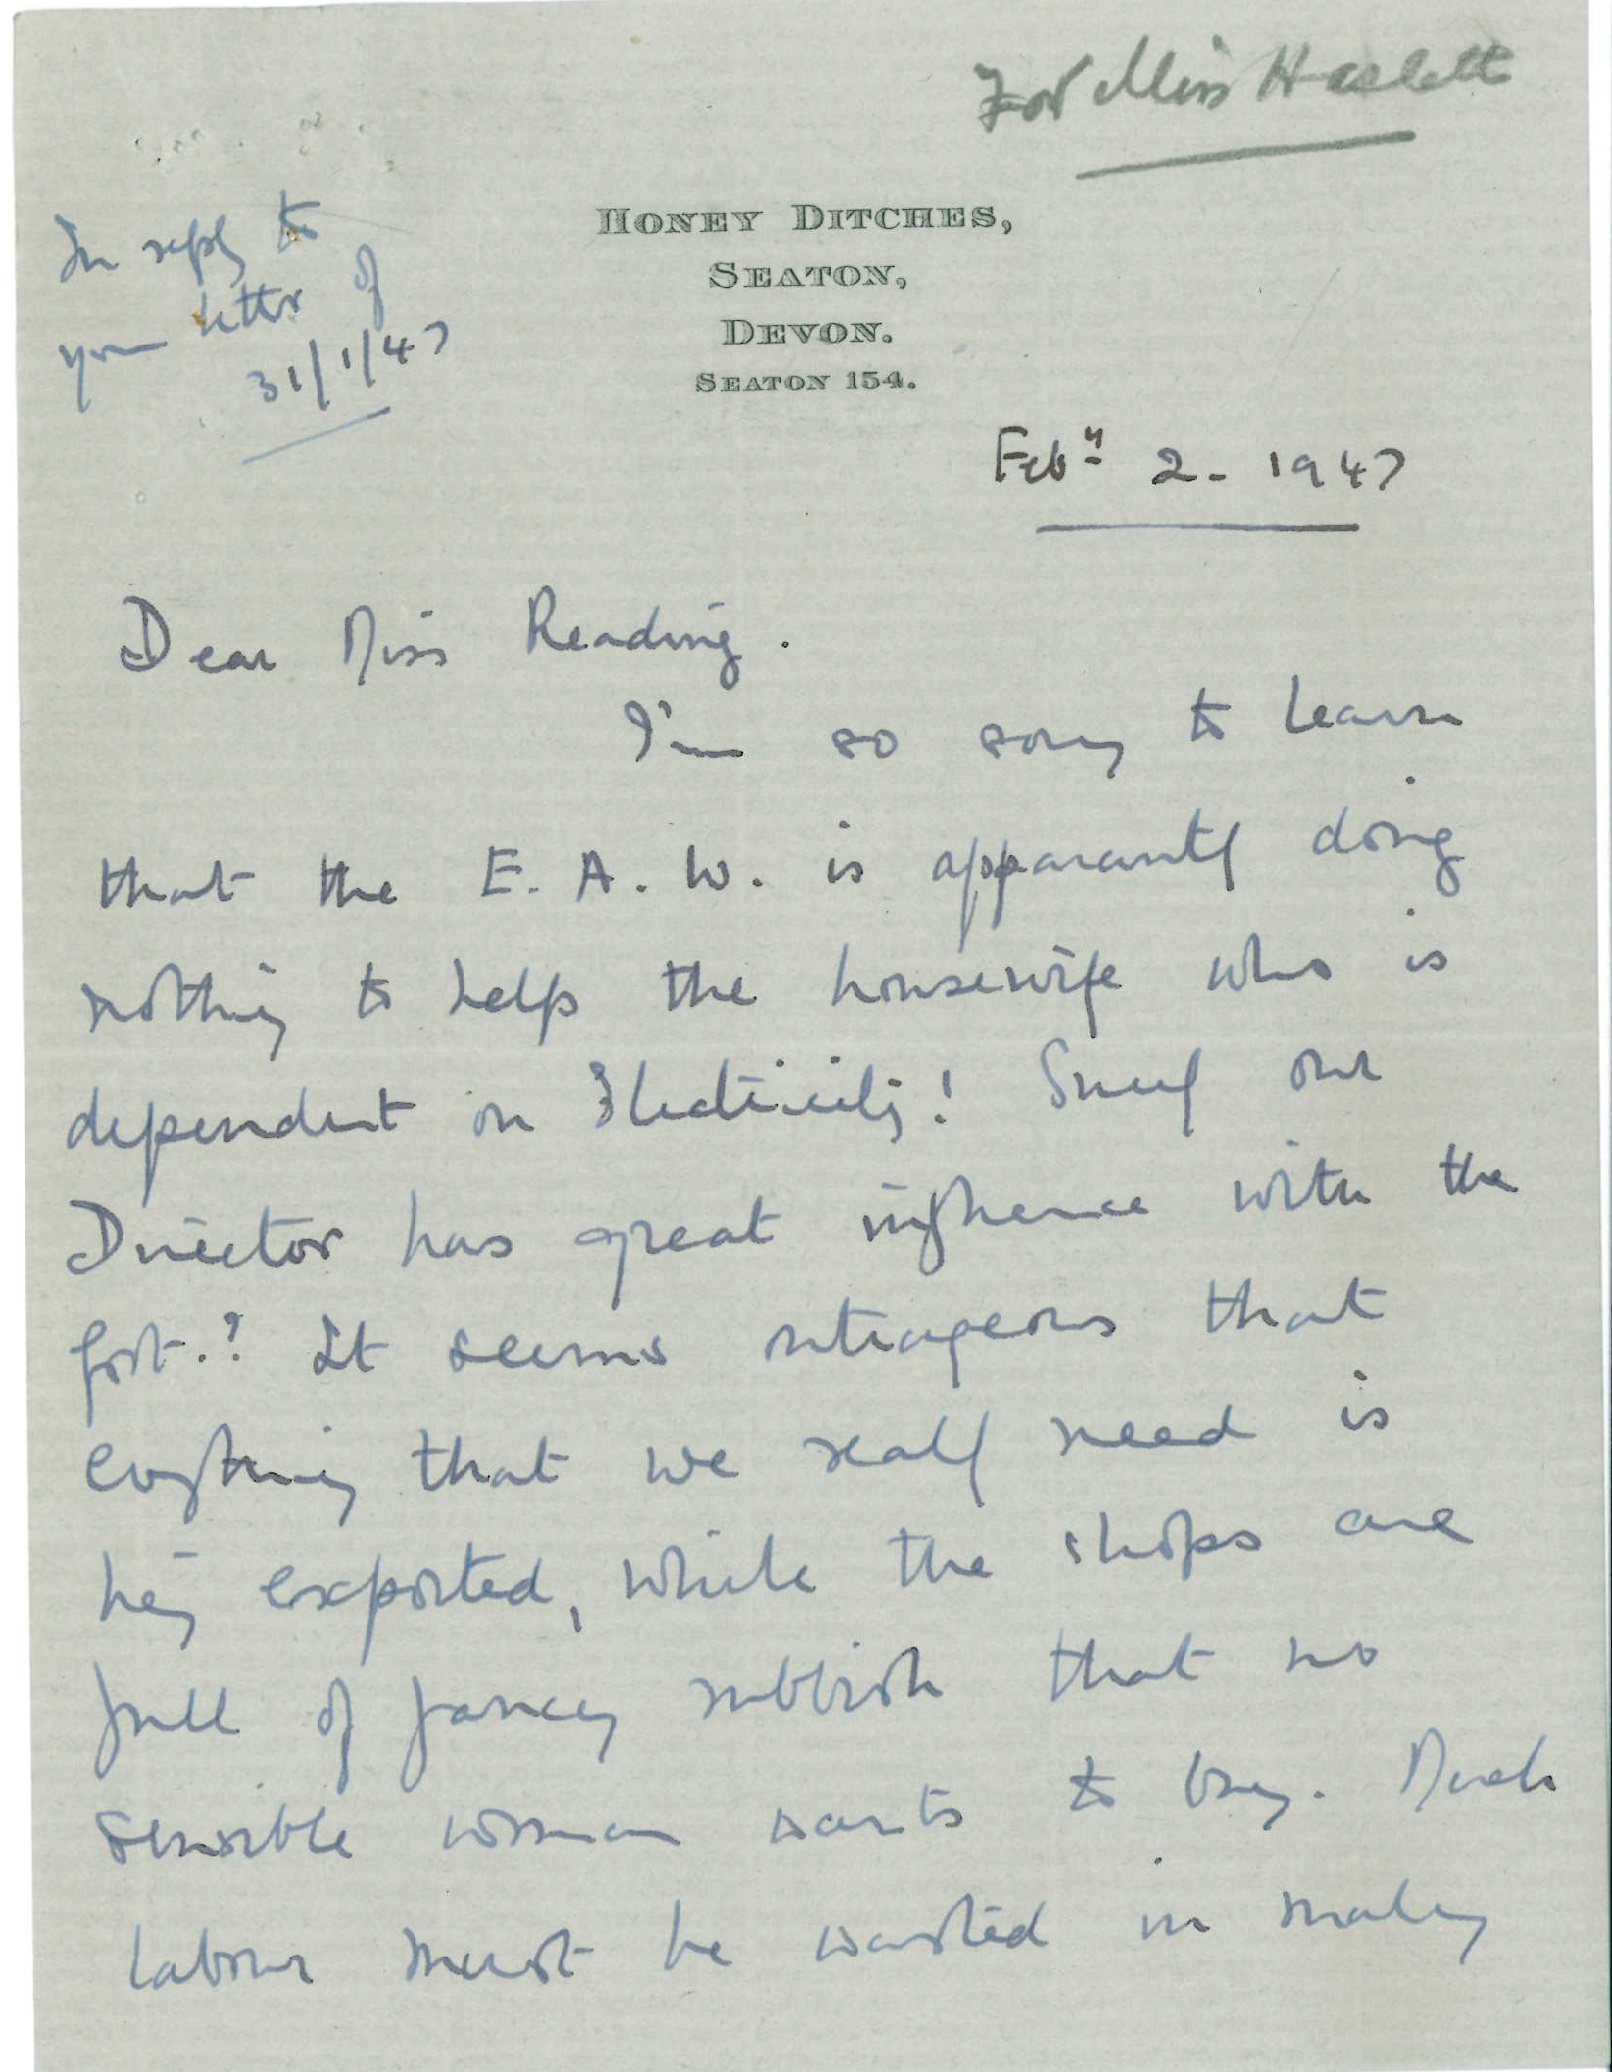 For Miss Haslett
In reply to
your letter of
31/1/47
HONEY DITCHES,
SEATON,
DEVON.
SEATON 154.
Feby 2. 1947
Dear Miss Reading.
I'm so sorry to learn
that the E. A. W. is apparantly doing
nothing to help the housewife who is
dependent on Electricity! Surely our
Director has great influence with the
Govt.? It seems outrageous that
everything that we really need is
being exported, while the shops are
full of fancy rubbish that no
sensible woman wants to buy. Much
labour must be wasted in making